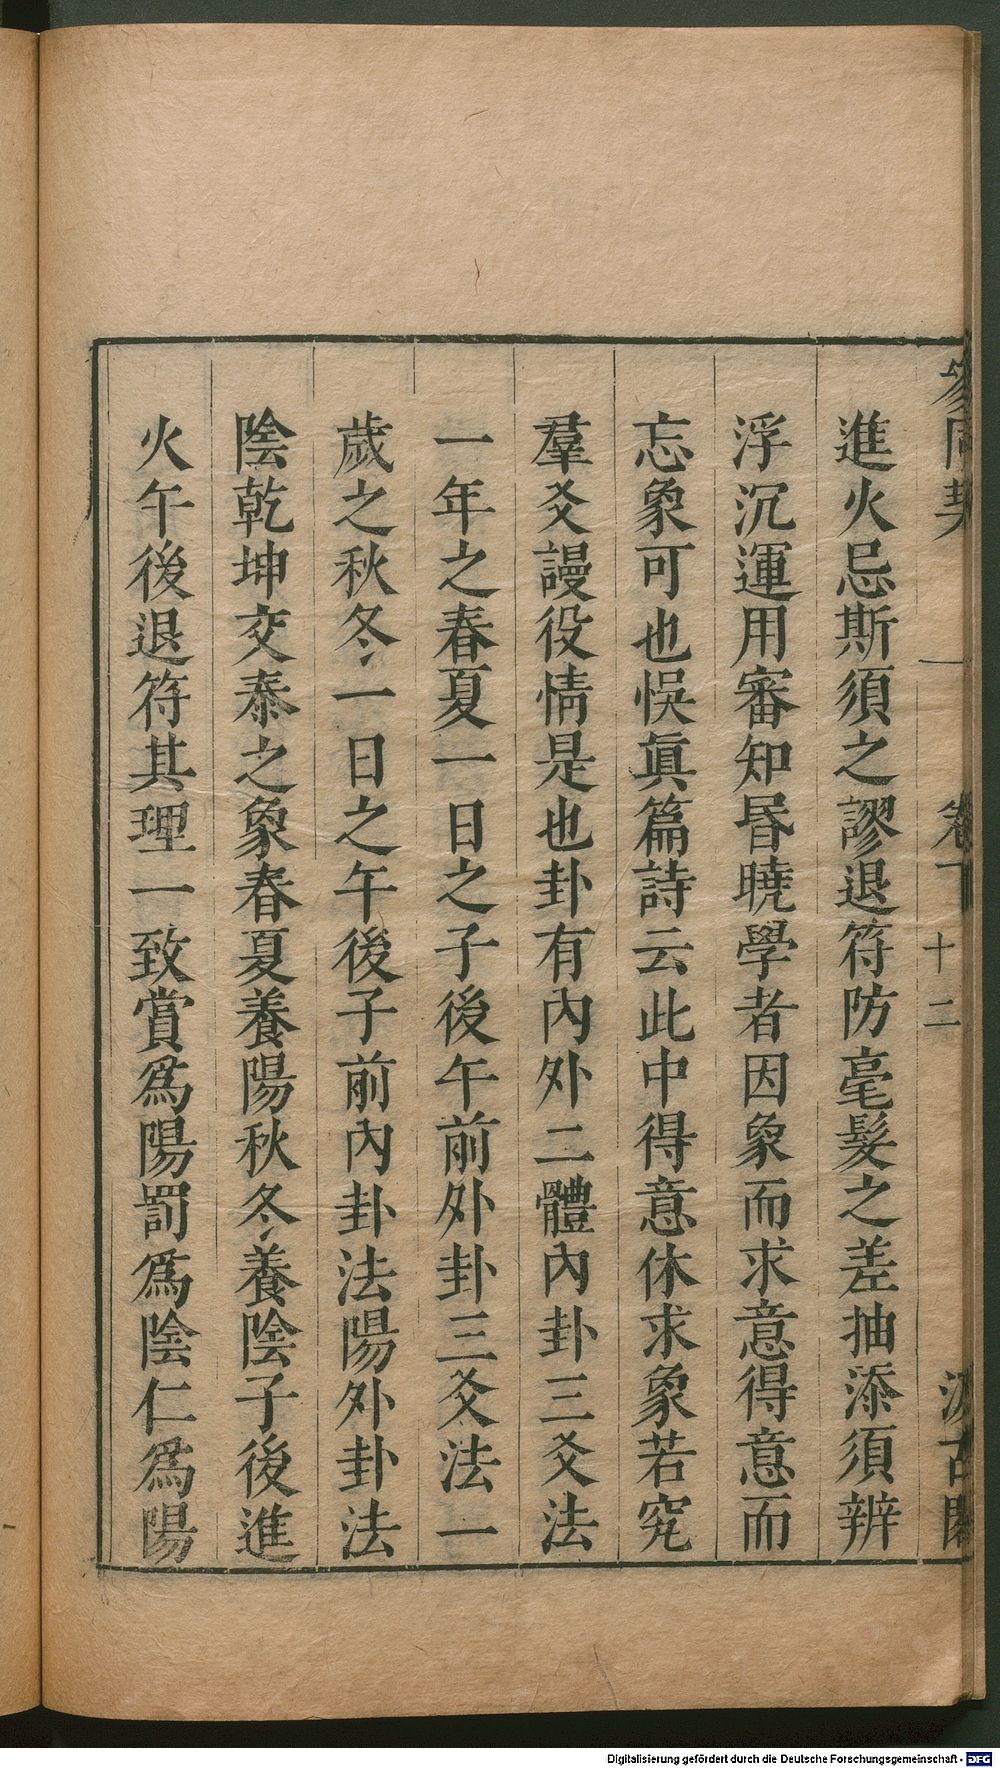 參同契 卷下 十二 汲古閣
進火忌斯須之謬退符防毫髮之差抽添須辨
浮沉運用審知昏曉學者因象而求意得意而
忘象可也悞眞篇詩云此中得意休求象若究
羣爻謾役情是也卦有內外二體內卦三爻法
一年之春夏一日之子後午前外卦三爻法一
歲之秋冬一日之午後子前內卦法陽外卦法
陰乾坤交泰之象春夏養陽秋冬養陰子後進
火午後退符其理一致賞爲陽罰爲陰仁爲陽
Digitalisierung gefördert durch die Deutsche Forschungsgemeinschaft - DFG